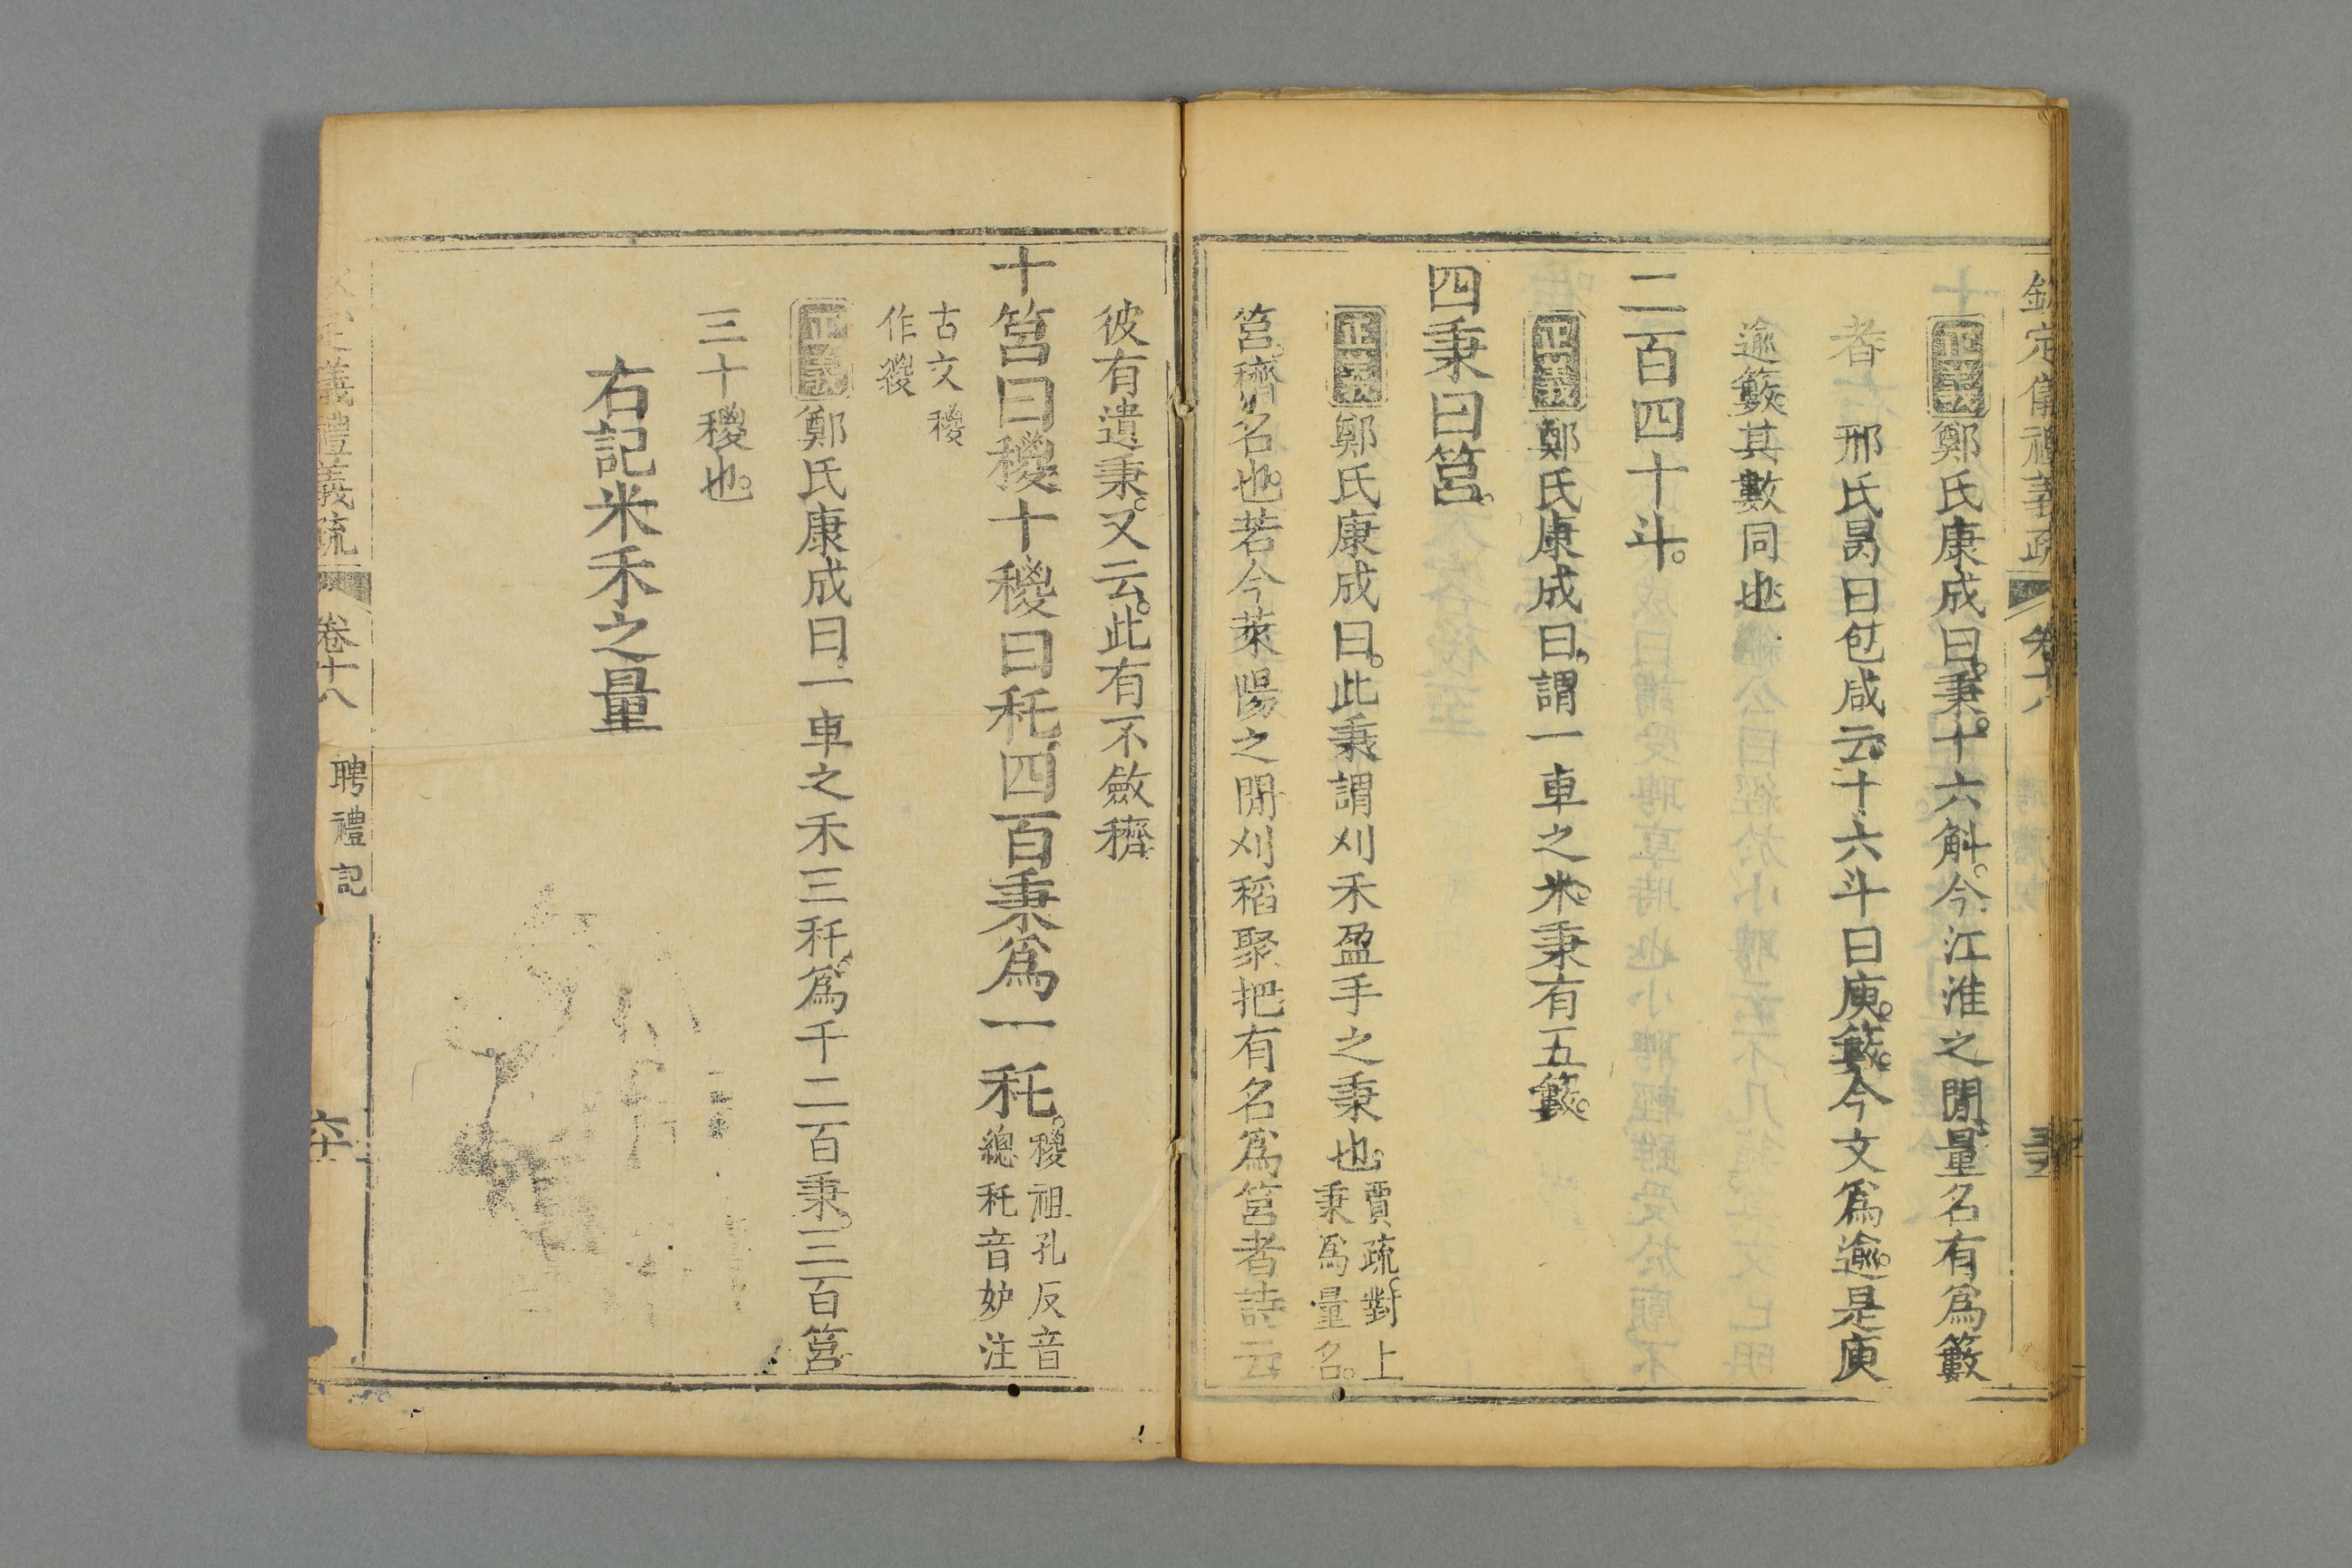 欽定儀禮義疏 卷十八
正義鄭氏康成曰。秉。十六斛。今江淮之閒。量名有爲籔
者 邢氏昺曰包咸云。十六斗曰庾。籔。今文爲逾。是庾
逾籔。其數同也
二百四十斗。
正義鄭氏康成曰。謂一車之米。秉有五籔。
四秉曰筥。
正義鄭氏康成曰。此秉。謂刈禾盈手之秉也。賈疏。對上
秉爲量名。
筥。穧名也。若今萊陽之閒刈稻聚把有名爲筥者詩云
彼有遺秉。又云。此有不斂穧
十筥曰稯十稯曰秅四百秉爲一秅。稯祖孔反音
總秅音妒注
古文稯
作緵
正義鄭氏康成曰一車之禾三秅爲千二百秉。三百筥
三十稯也。
右記米禾之量
義禮義疏 卷十八 聘禮記 六十